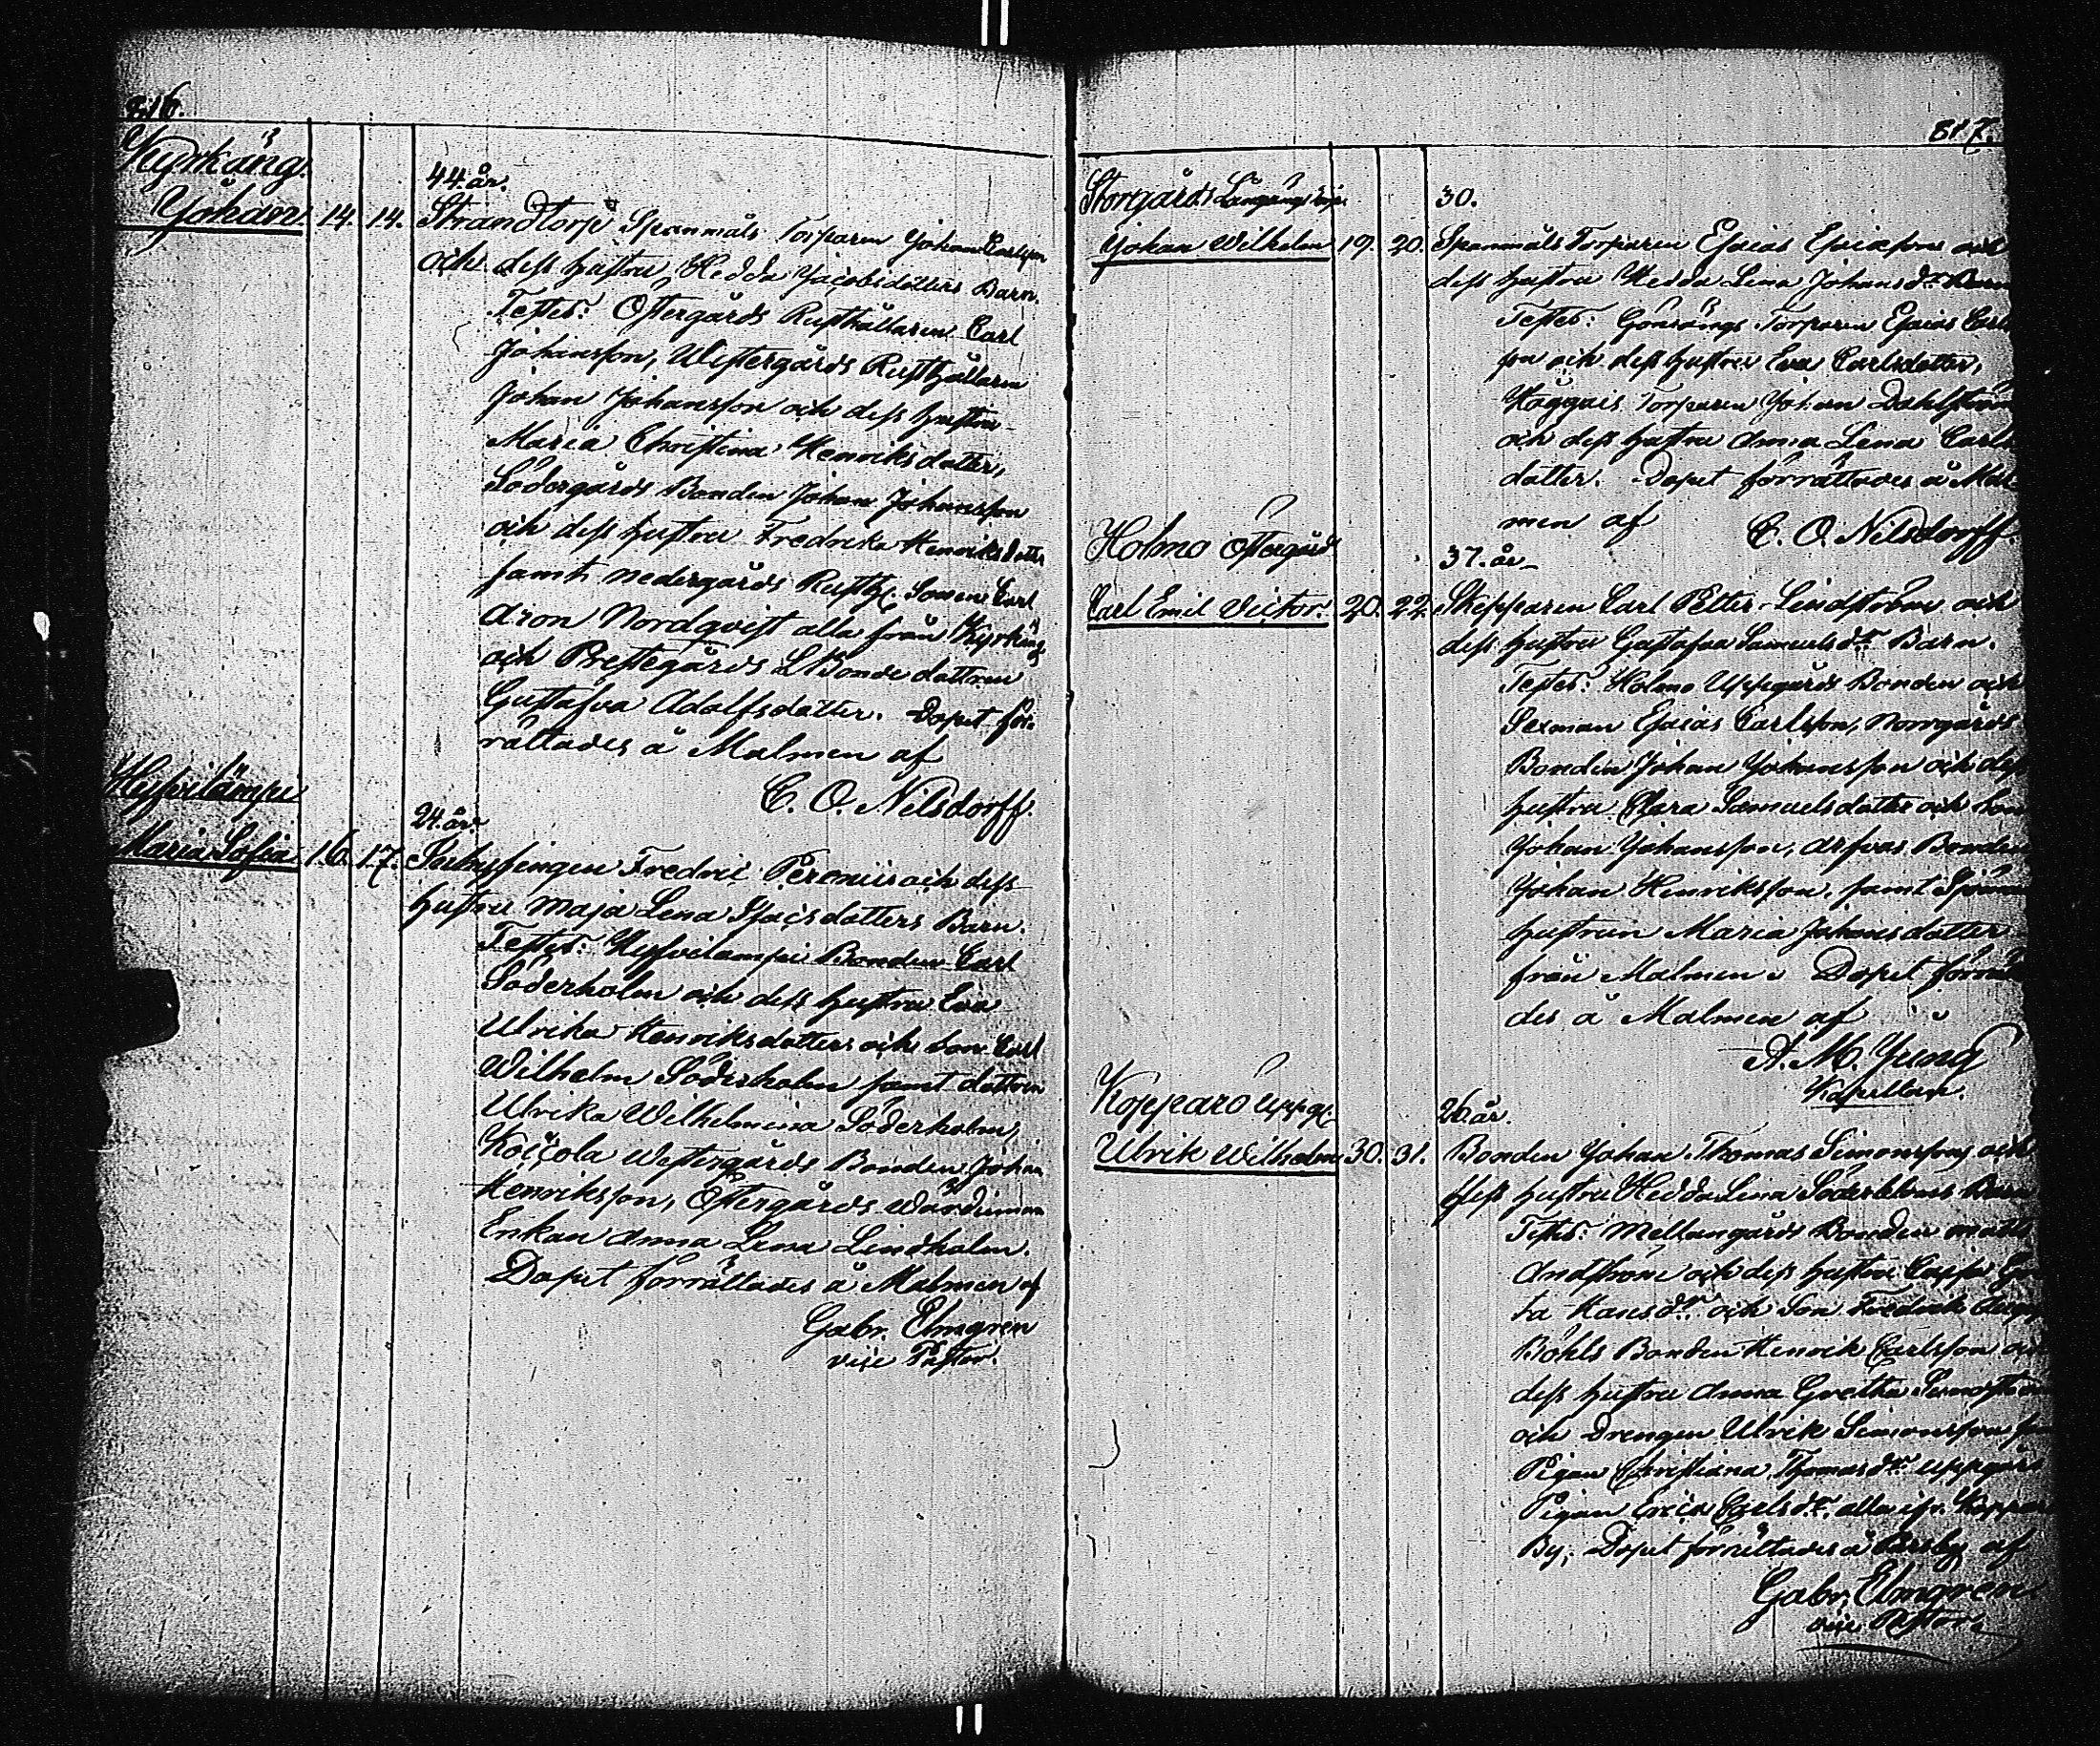 816.
Kyrkäng.
44. år.
Johan. 14. 14. Strandtorp Spanmåls Torparen Johan Carlsson
och dess hustru Hedda Jacobsdotters Barn.
Testes: Östergårds Rusthållaren Carl
Johansson, Westergårds Rusthållaren
Johan Johansson och dess hustru
Maria Christina Henriksdotter,
Södergårds Bonden Johan Johansson
och dess hustru Fredrika Henriksdotter
samt nedergårds Rusth. Sonen Carl
Aron Nordqvist alla från Kyrkäng
och Prestegårds LBonde dottren
Gustafva Adolfsdotter. Dopet för-
rättades å Malmen af
C. O. Nilsdorff.
24. år.
Maria Sofia 16. 17. Fredric och dess
hustru Maja Lena Isacsdotters Barn.
Testes: Bonden Carl
Söderholm och dess hustru Eva
Ulrika Henriksdotters och son Carl
Wilhelm Söderholm samt dottren
Ulrika Wilhelmina Söderholm,
Köccola Westergårds Bonden Johan
Henriksson, Östergårds
Enkan Anna Lena Lindholm.
Dopet förrättades å Malmen af
Gabr. Elmgren
vice Pastor.
817.
Storgårds Långängs torp
30.
Johan Wilhelm 19. 20. Spanmåls Torparen Esaias Esaiasson och
dess hustru Hedda Lena Johansdr. Barn
Testes: Torparen Esaias Carls
son och dess hustru Eva Carlsdotter,
Häggais Torparen Johan Dahlström
och dess hustru Anna Lena Carls
dotter. Dopet förrättades å Mal-
men af C. O. Nilsdorff
Holmo Östergård
37. år
Carl Emil Victor. 20. 22. Skepparen Carl Petter Lindström och
dess hustru Gustafva Samuelsdr. Barn.
Testes: Holmo Uppgårds Bonden och
Sexman Esaias Carlsson, Norrgårds
Bonden Johan Johansson och dess
hustru Clara Samuelsdotter och Son
Johan Johansson, Arfvas Bonden
Johan Henriksson, samt
hustrun Maria Johansdotter
från Malmen. Dopet förrätta
des å Malmen af
A. M. Jung
Kapellan.
Kopparö Uppg.
26. år.
Ulrik Wilhelm 30. 31. Bonden Johan Thomas Simonssons och
dess hustru Hedda Lena Söderbloms Barn
Testes: Mellangårds Bonden Matts
Andström och dess hustru Cajsa Gre
ta Hansdr. och Son Fredrik
Böhls Bonden Henrik Carlsson och
dess hustru Anna Gretha
och Drengen Ulrik Simonsson,
Pigan Christiana Thomasdr. uppgårds
Pigan alla ifr. Koppar
By, Dopet förrättades å Persby af
Gabr. Elmgren
vice Pastor.